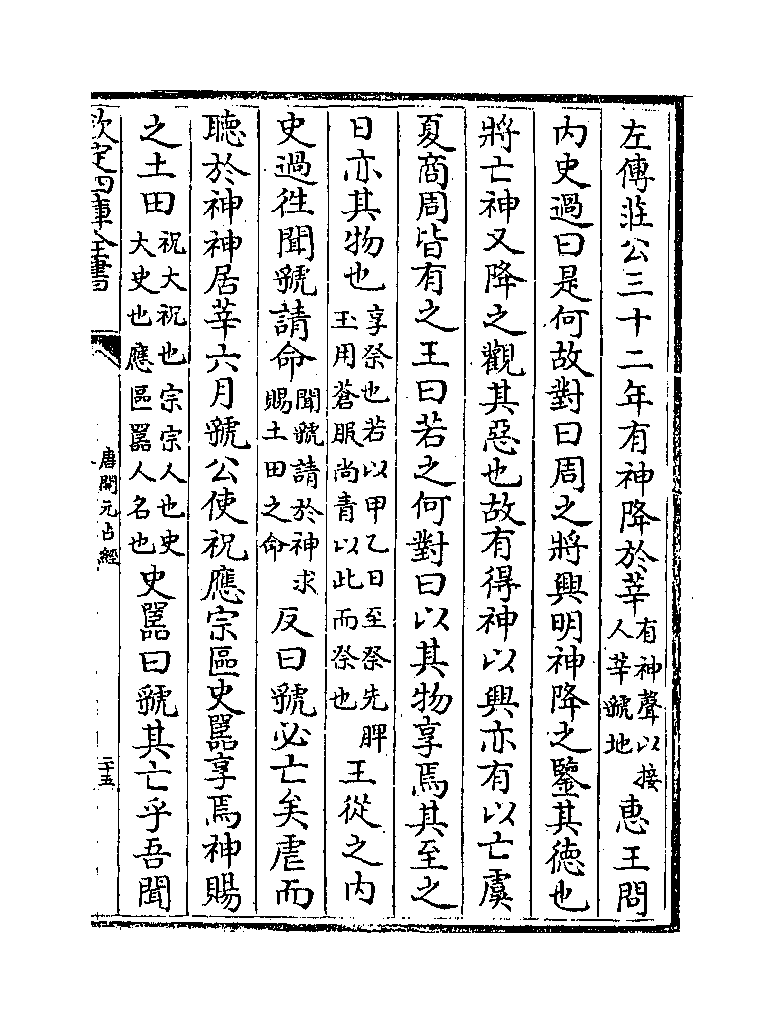 左傳莊公三十二年有神降於莘有神聲以接人莘虢地惠王問
內史過曰是何故對曰周之將興明神降之鑒其德也
將亡神又降之觀其惡也故有得神以興亦有以亡虞
夏商周皆有之王曰若之何對曰以其物享焉其至之
日亦其物也享祭也若以甲乙日至祭先脾玉用蒼服尚青以此而祭也王從之內
史過徃聞虢請命聞虢請於神求賜土田之命反曰虢必亡矣虐而
聽於神神居莘六月虢公使祝應宗區史嚚享焉神賜
之土田祝大祝也宗宗人也史大史也應區嚚人名也史嚚曰虢其亡乎吾聞
欽定四庫全書
唐開元占經
二十五